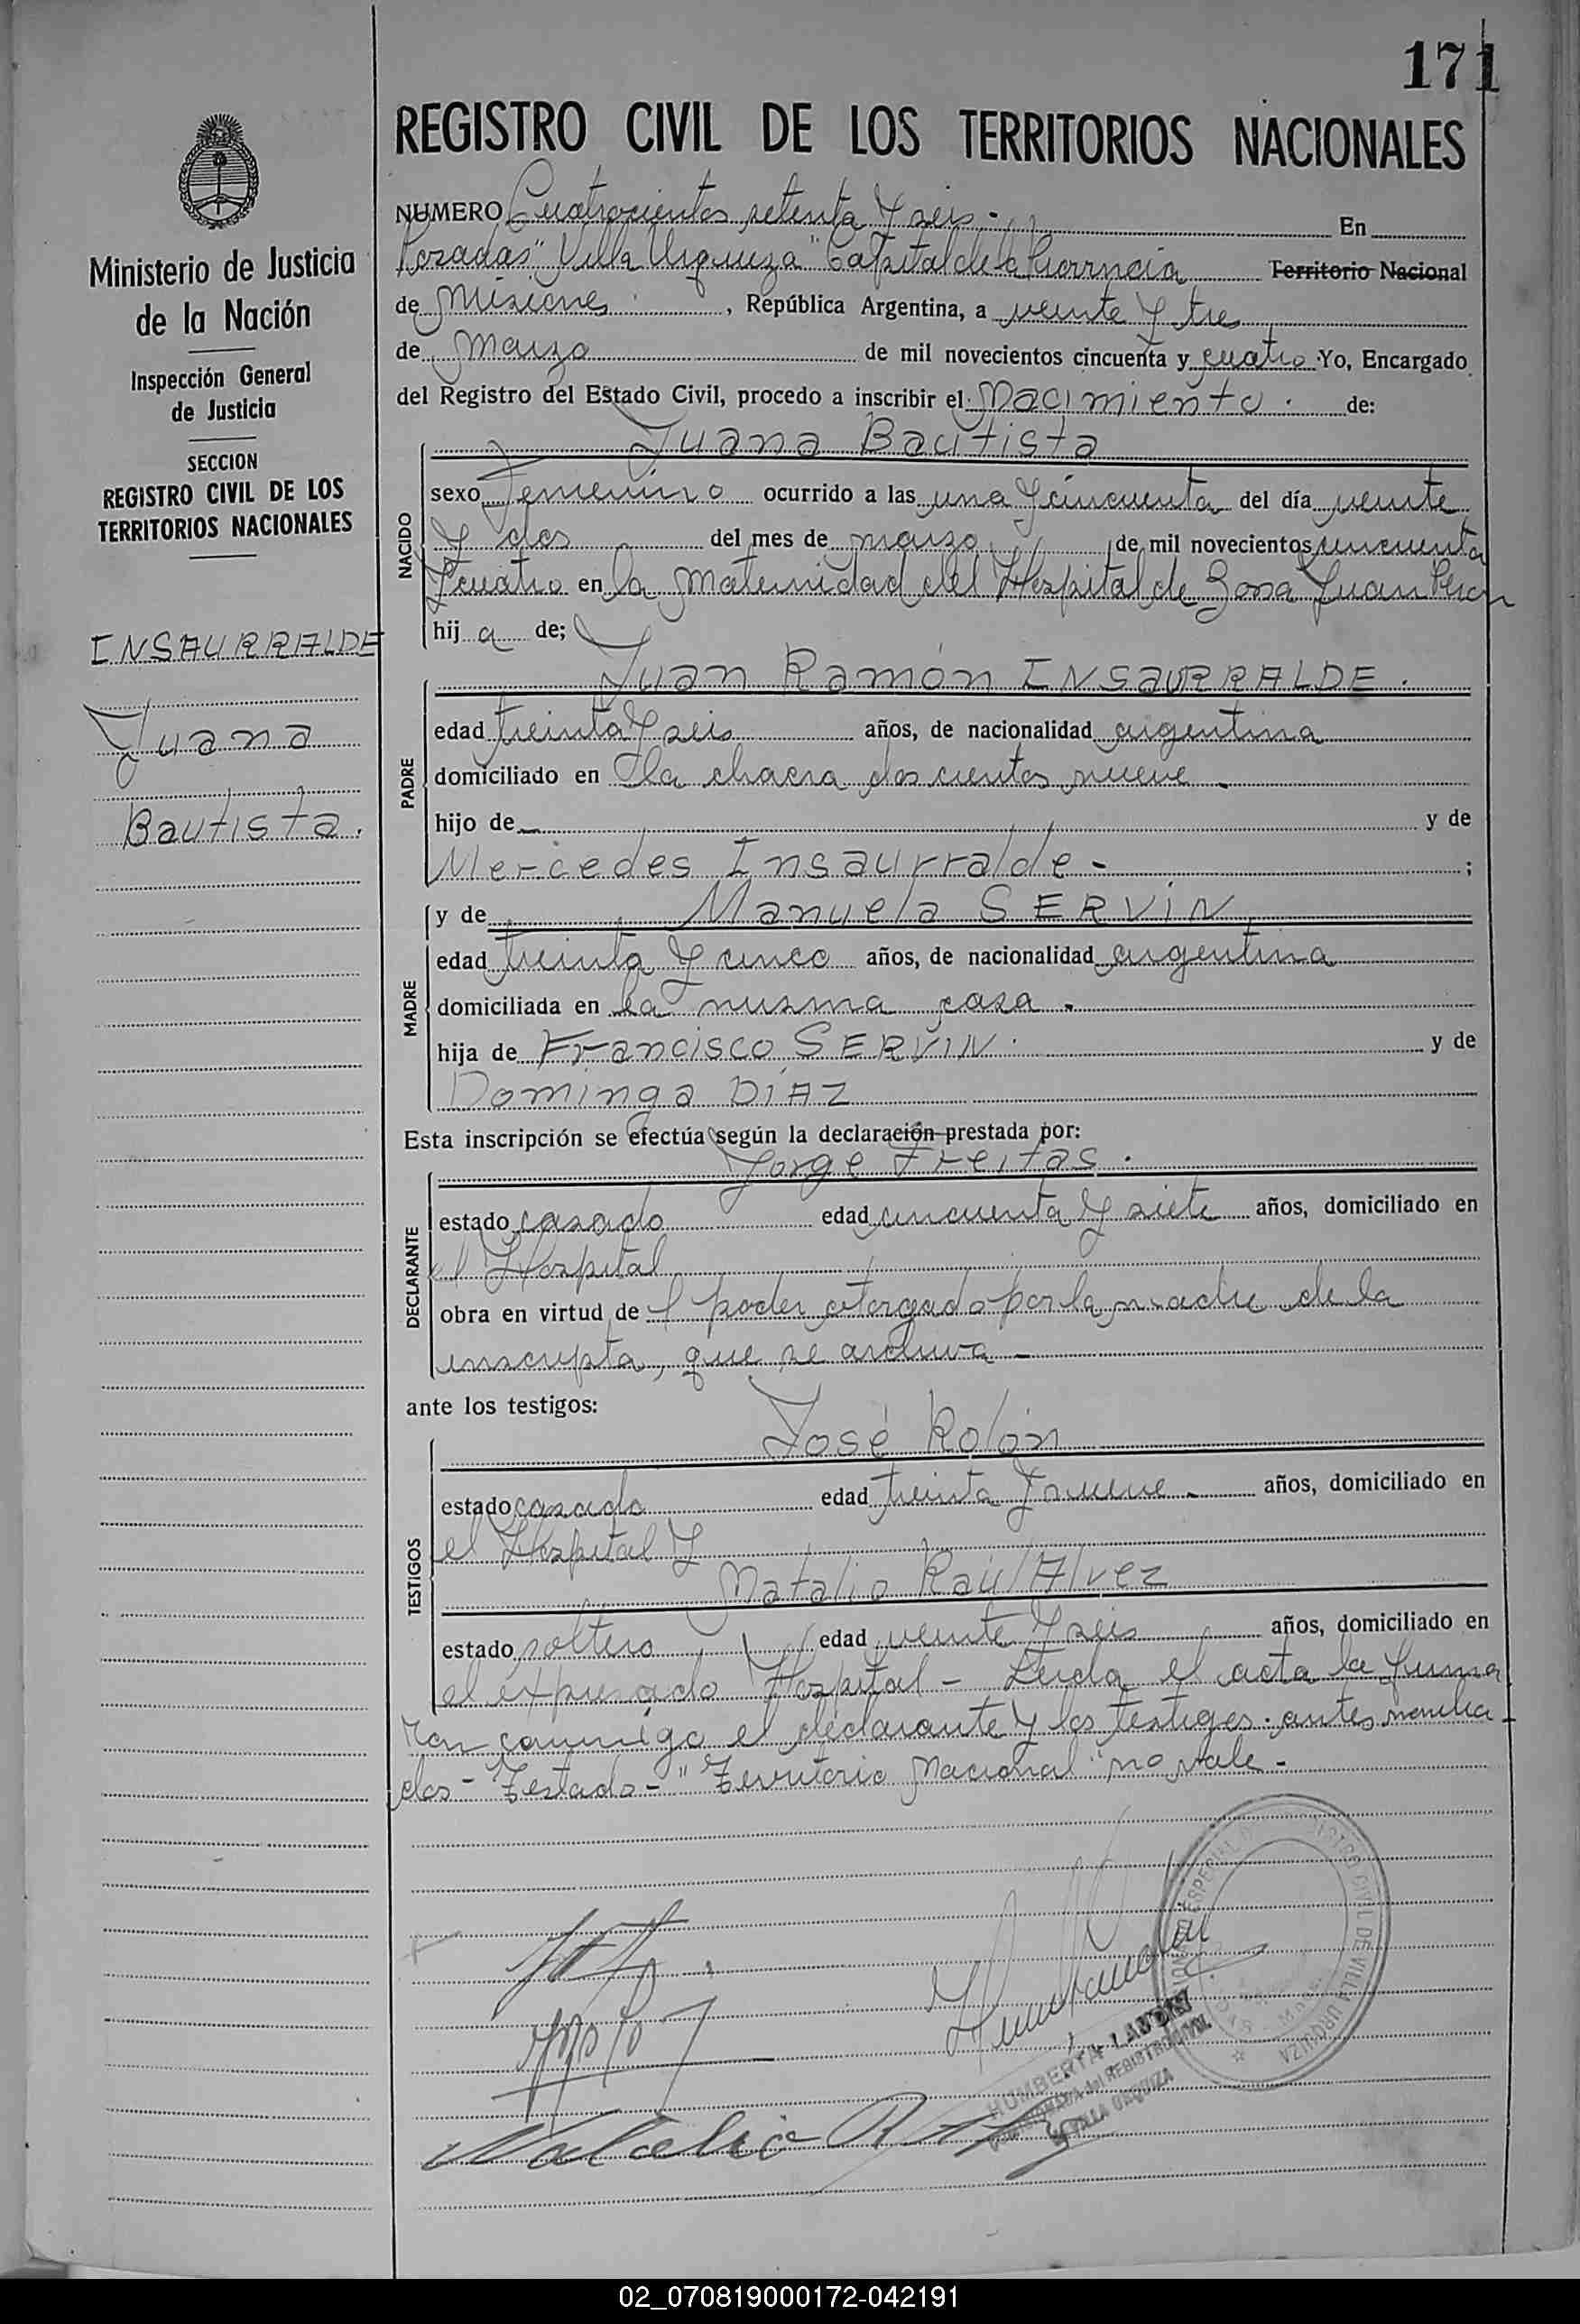 171
REGISTRO CIVIL DE LOS TERRITORIOS NACIONALES
Ministerio de Justicia
de la Nación
Inspección General
de Justicia
SECCION
REGISTRO CIVIL DE LOS
TERRITORIOS NACIONALES
INSAURRALDE
Juana
Bautista.
NUMERO Cuatrocientos setenta y seis - En
Posadas "Villa Urquiza" Capital de la Provincia Territorio Nacional
de Misiones, República Argentina, a veinte y tres
de Marzo de mil novecientos cincuenta y cuatro Yo, Encargado
del Registro del Estado Civil, procedo a inscribir el Nacimiento de:
Juana Bautista
NACIDO
sexo femenino ocurrido a las una y cincuenta del día veinte
y dos del mes de marzo de mil novecientos cincuenta
y cuatro en la Maternidad del Hospital de Zona Juan Peron
hija de;
Juan Ramón INSAURRALDE.
PADRE
edad treinta y seis años, de nacionalidad argentina
domiciliado en la chacra doscientos nueve -
hijo de - y de
Mercedes Insaurralde - ;
y de Manuela SERVIN
MADRE
edad treinta y cinco años, de nacionalidad argentina
domiciliada en la misma casa -
hija de Francisco SERVIN. y de
Dominga DÍAZ
Esta inscripción se efectúa según la declaración prestada por:
Jorge Freitas.
DECLARANTE
estado casado edad cincuenta y siete años, domiciliado en
el Hospital
obra en virtud de l poder otorgado por la madre de la
inscripta, que se archiva -
ante los testigos:
José Rolón
TESTIGOS
estado casado edad treinta y nueve - años, domiciliado en
el Hospital y
Natalio Raúl Alvez
estado soltero edad veinte y seis años, domiciliado en
el expresado Hospital - Leida el acta la firma
ron conmigo el declarante y los testigos antes nombra
dos - Testado - "Territorio Nacional" no vale -
REGISTRO CIVIL DE VILLA URQUIZA
HUMBERTA
del REGISTRO CIVIL
VILLA URQUIZA
Natalio R
02_070819000172-042191